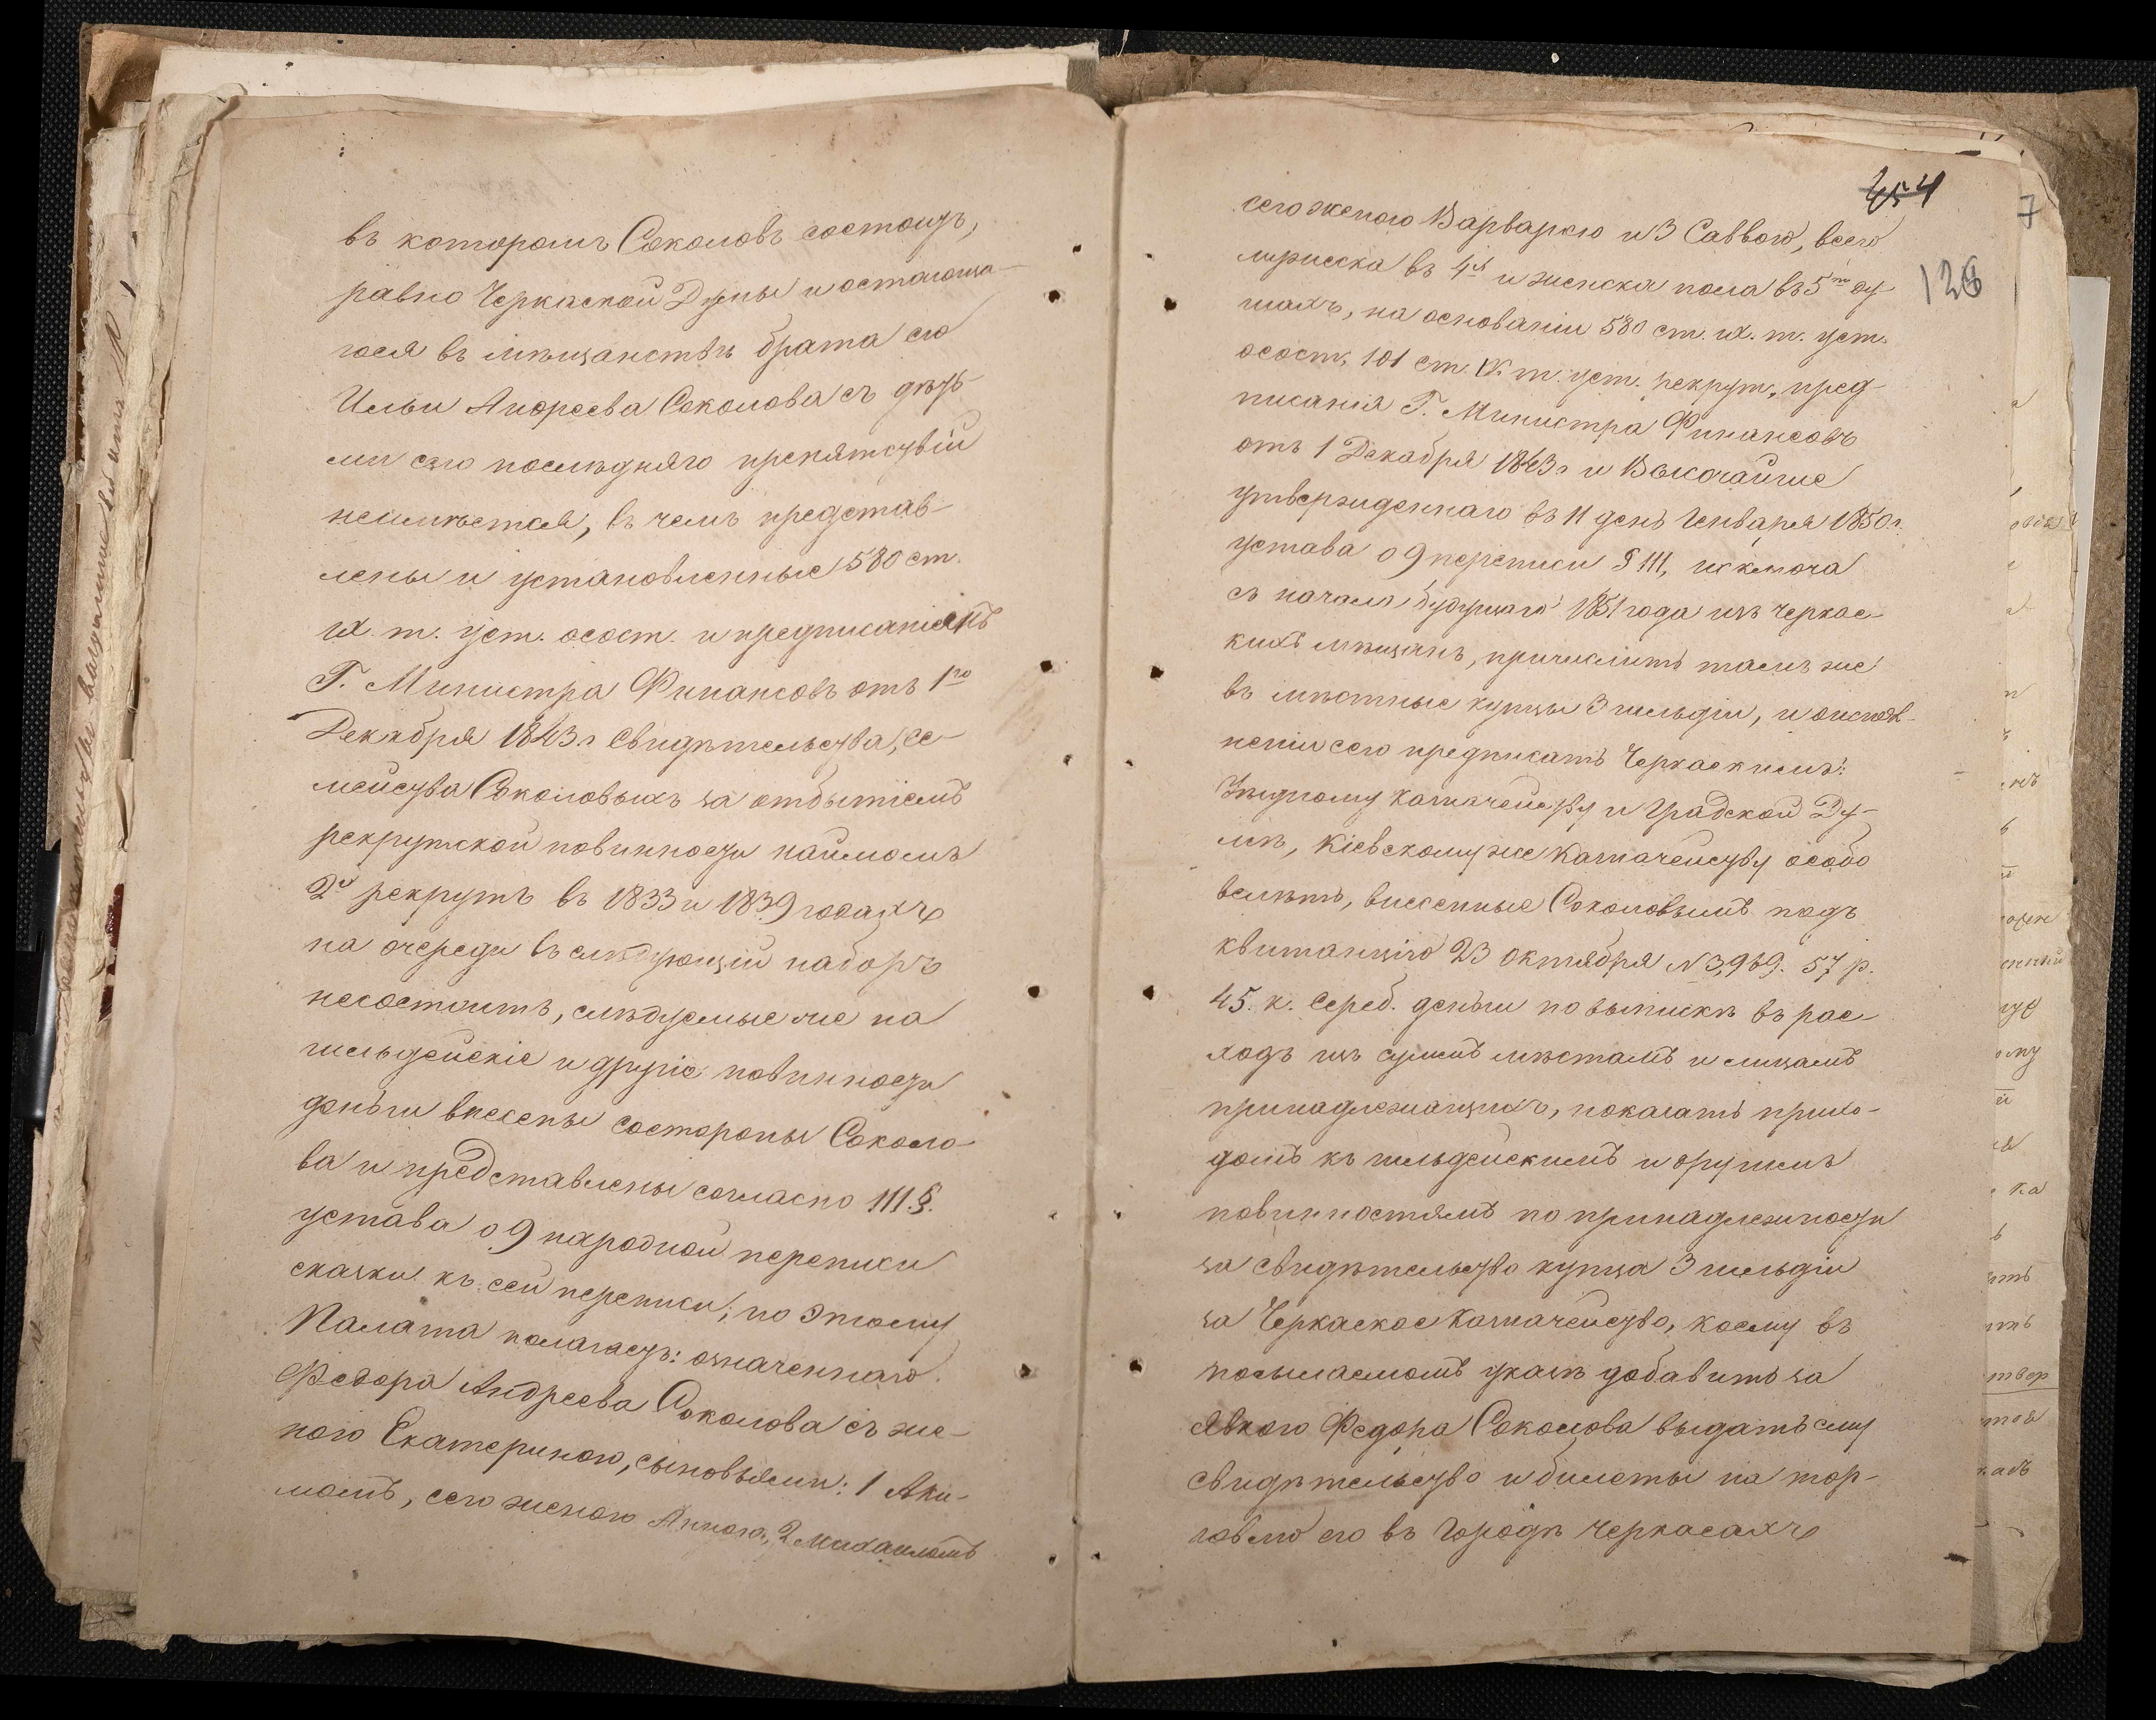 въ которомъ Соколовъ состоитъ,
равно Черкаской Думы и остающа-
гося въ мѣщанствѣ брата его
Ильи Андреева Соколова съ дѣть-
ми сего послѣдняго препятствій
неимѣется, въ чемъ представ-
лены и установленные 580 ст.
IX. т. уст. о сост. и предписаніемъ
Г. Министра Финансовъ отъ 1го
Декабря 1843 г свидѣтельства, се-
мейства Соколовыхъ за отбытіемъ
рекрутской повинности наймомъ
2хъ рекрутъ въ 1833 и 1839 годахъ
на очереди въ слѣдующій наборъ
несостоитъ, слѣдуемые же на
гильдейскіе и другіе повинности
деньги внесены состороны Соколо-
ва и представлены согласно 111 §.
устава о 9 народной переписи
сказки къ сей переписи; по этому
Палата полагаетъ: означеннаго
Федора Андреева Соколова съ же-
ною Екатериною, сыновьями: 1 Аки-
момъ, сего женою Анною, 2 Михаиломъ
454
7
126
сего женою Варварою и 3 Саввою, всего
мужеска въ 4хъ и женска пола въ 5ти ду-
шахъ, на основаніи 580 ст. IX. т. уст.
о сост., 101 ст. IV т. уст. рекрут., пред-
писанія Г. Министра Финансовъ
отъ 1 Декабря 1843 г и Высочайше
утвержденнаго въ 11 день Генваря 1850 г.
устава о 9 переписи § 111, исключа
съ начала будущаго 1851 года изъ Черкас-
кихъ мѣщанъ, причислить тамъ же
въ мѣстные купцы 3 гильдіи, и о испол-
неніи сего предписать Черкаскимъ:
Уѣздному казначейству и Градской Ду-
мѣ, Кіевскому же Казначейству особо
велѣть, внесенные Соколовымъ подъ
квитанцію 23 Октября N 3,969. 57 р.
45. к. сереб. деньги по выпискѣ въ рас-
ходъ изъ суммъ мѣстамъ и лицамъ
принадлежащихъ, показать прихо-
домъ къ гильдейскимъ и другимъ
повинностямъ по принадлежности
за свидѣтельство купца 3 гильдіи
за Черкаское Казначейство, коему въ
посылаемомъ указѣ добавить за
явкою Федора Соколова выдать ему
свидѣтельство и билеты на тор-
говлю его въ городѣ Черкасахъ